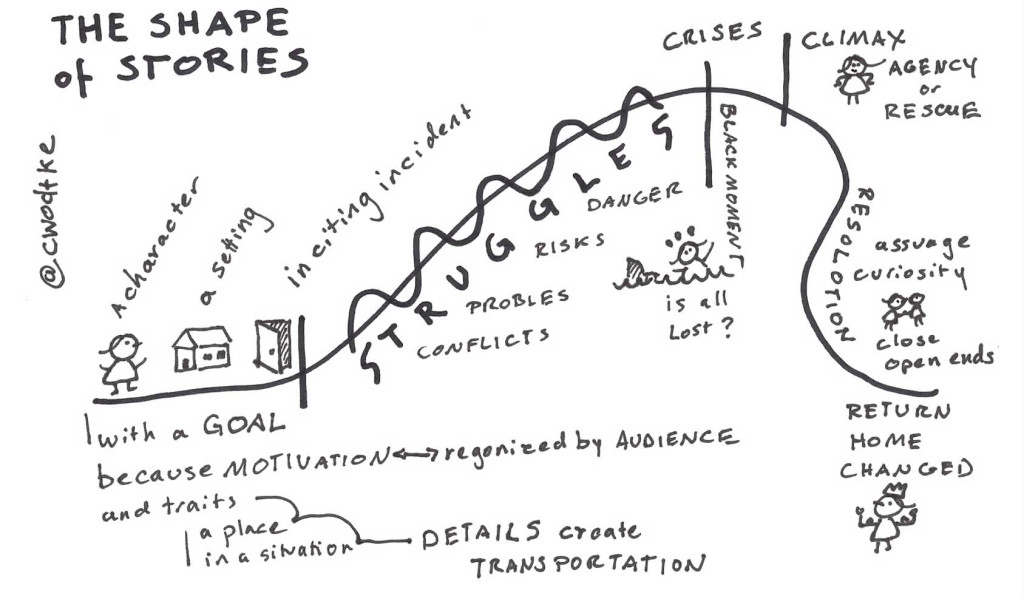 THE SHAPE
of STORIES
@cwodtke
A character
a setting
inciting incident
STRUGGLES
DANGER
RISKS
PROBLES
CONFLICTS
CRISES
BLACK MOMENT
is all
Lost?
CLIMAX
AGENCY
or
RESCUE
RESOLOTION
assuage
curiosity
close
open ends
RETURN
HOME
CHANGED
with a GOAL
because MOTIVATION↔regonized by AUDIENCE
and traits
a place
in a situation
DETAILS create
TRANSPORTATION